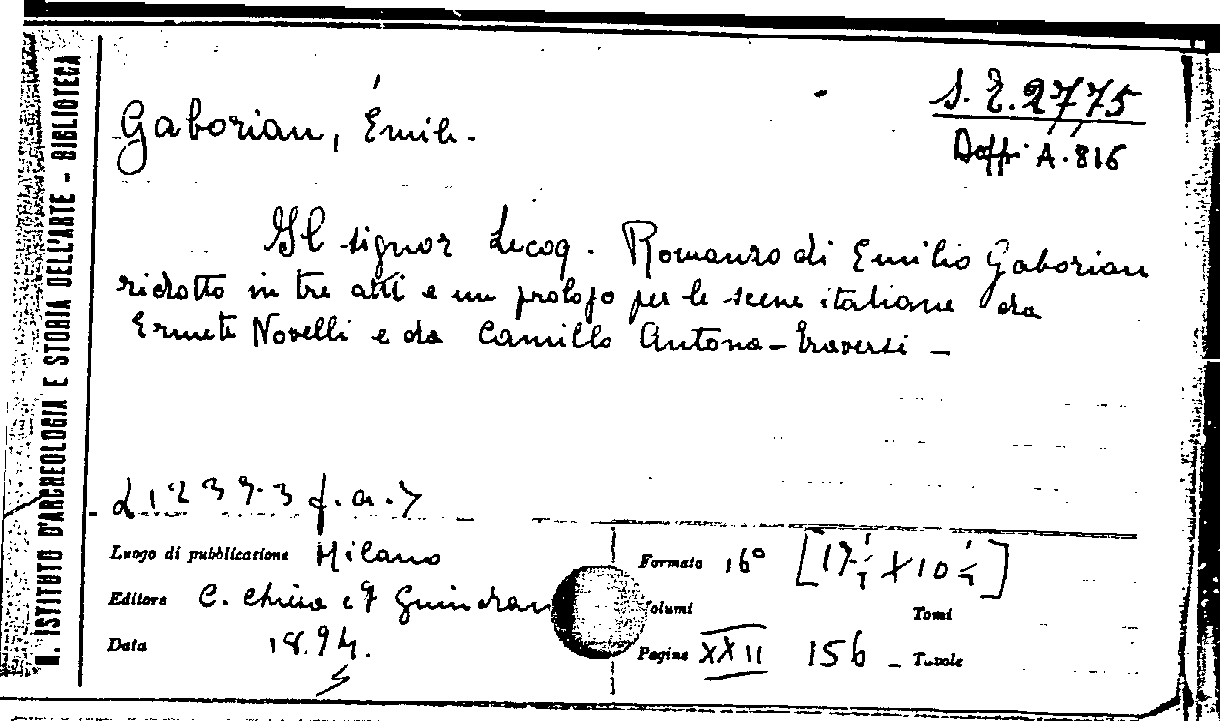 R. ISTITUTO D'ARCHEOLOGIA E STORIA DELL'ARTE - BIBLIOTECA
S. E. 2775
Doppi A. 816
Gaboriau, Émile.
Il signor Lecoq. Romanzo di Emilio Gaboriau
ridotto in tre atti e un prologo per le scene italiane da
Ermete Novelli e da Camillo Antona-Traversi -
Luogo di pubblicazione Milano
Editore C. Chiesa e F Guindani
Data 1894.
Formato 16° [17 ½ X 10 ½]
Volumi Tomi
Pagine XXII 156 - Tavole